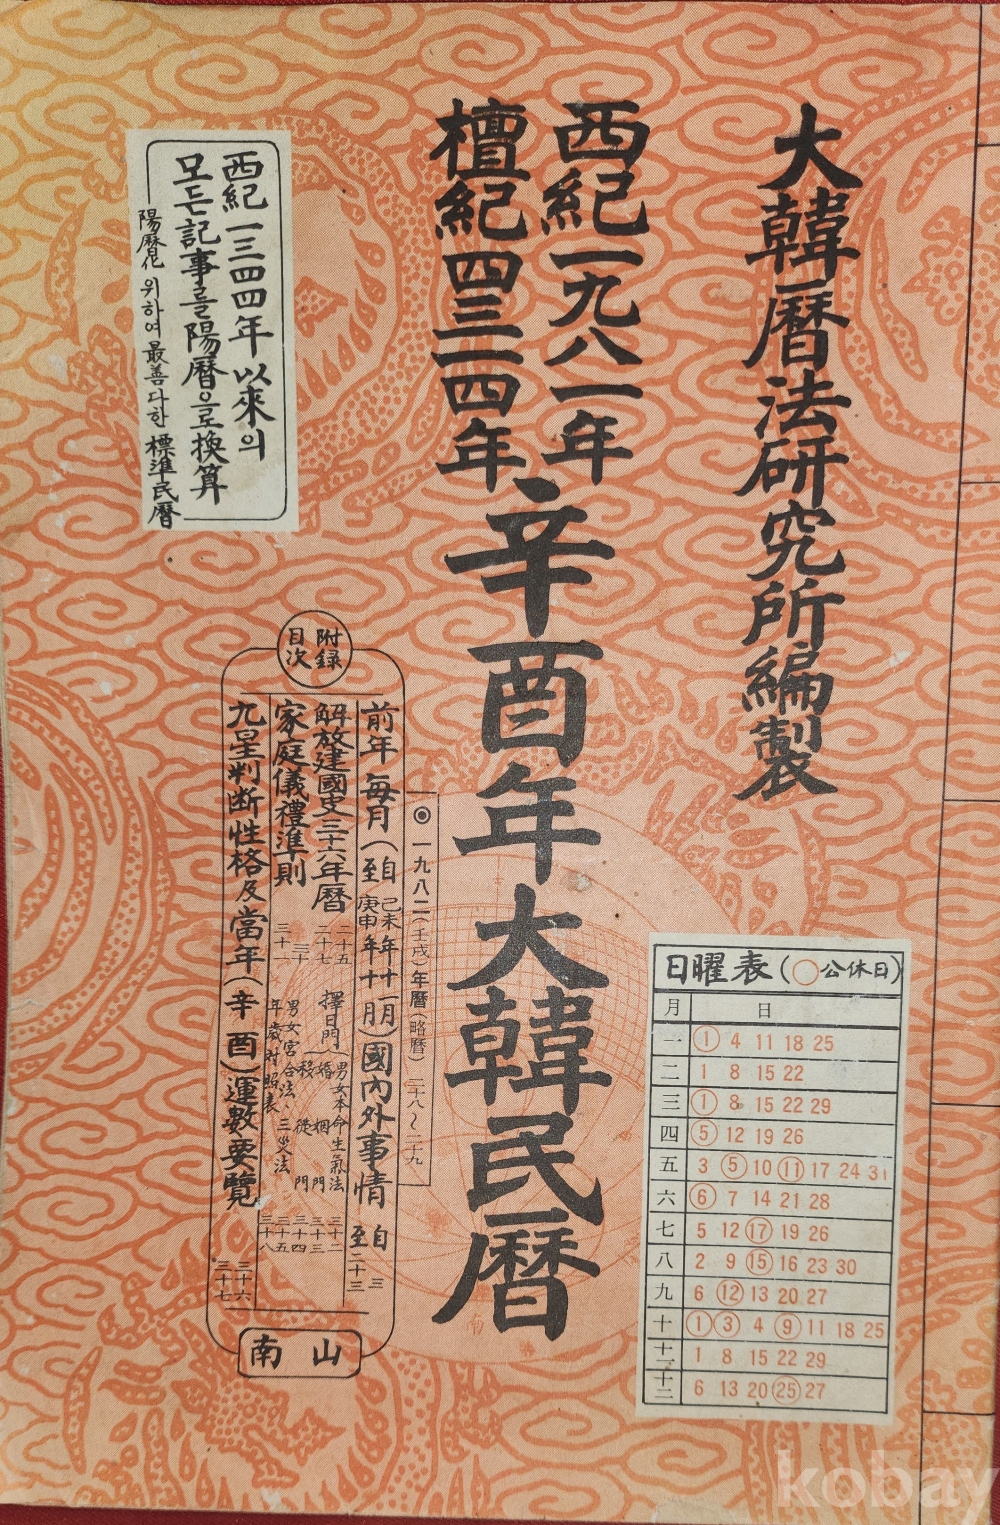 大韓曆法研究所編製
西紀一九八一年
檀紀四三一四年
辛酉年大韓民曆
西紀一三四四年以來의
모든記事를陽曆으로換算
陽曆化 위하여 最善다한 標準民曆
附録
目次
◉一九八二(壬戌)年曆(略曆) 二十八~二十九
前年 每月(自己未年十一月 至庚申年十月)國內外事情 自三 至二十三
解放建國史三十六年曆 二十五 二十七
擇日門(男女本命生氣法 三十二
婚姻門 三十三
移徙門 三十四
家庭儀禮準則 三十 三十一
男女宮合法、三災法 三十五
年歲対照表 三十八
九星判断性格及當年(辛酉)運數要覽 三十六 三十七
南山
日曜表(○公休日)
月 日
一 1 4 11 18 25
二 1 8 15 22
三 1 8 15 22 29
四 5 12 19 26
五 3 5 10 11 17 24 31
六 6 7 14 21 28
七 5 12 17 19 26
八 2 9 15 16 23 30
九 6 12 13 20 27
十 1 3 4 9 11 18 25
十一 1 8 15 22 29
十二 6 13 20 25 27
南
kobay